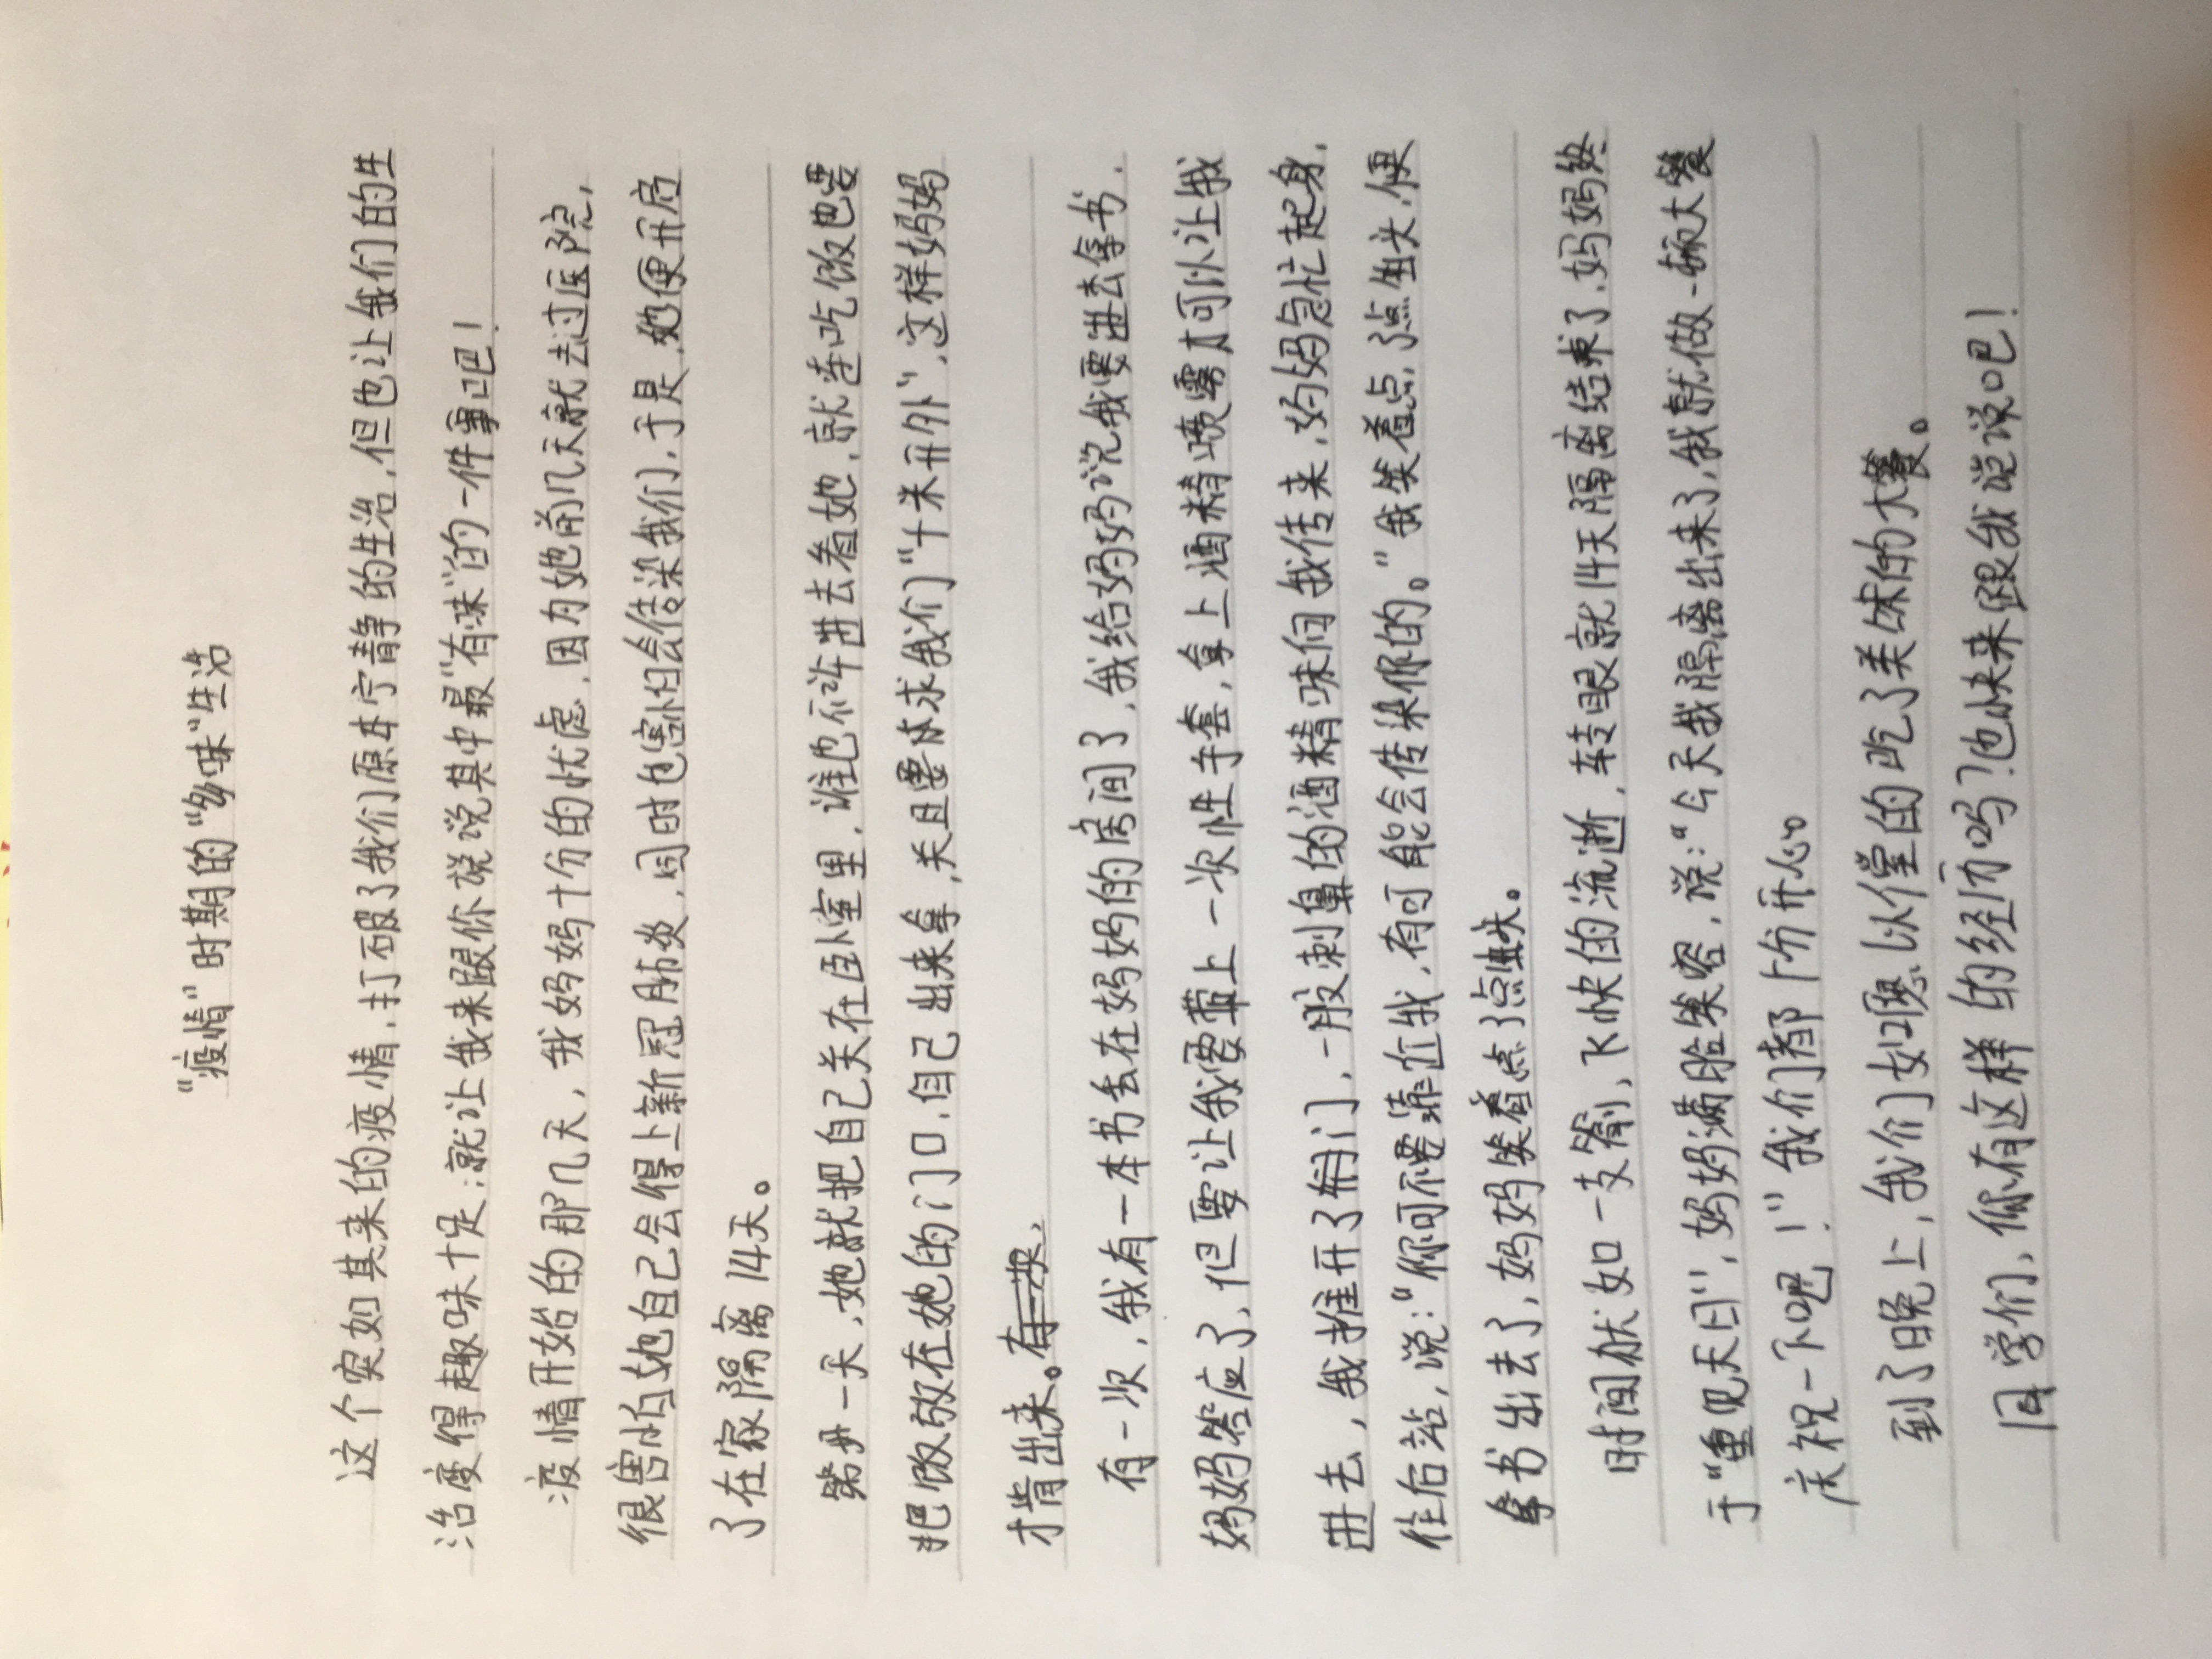 “疫情”时期的“多味”生活
这个突如其来的疫情，打破了我们原本宁静的生活，但也让我们的生
活变得趣味十足；就让我来跟你说说其中最“有味”的一件事吧！
疫情开始的那几天，我妈妈十份的忧虑，因为她前几天就去过医院，
很害怕她自己会得上新冠肺炎，同时也害怕会传染我们，于是，她便开启
了在家隔离14天。
第一天，她就把自己关在卧室里，谁也不许进去看她，就连吃饭也要
把饭放在她的门口，自己出来拿，关且要求我们“十米开外”，这样妈妈
才肯出来。
有一次，我有一本书丢在妈妈的房间了，我给妈妈说我要进去拿书，
妈妈答应了，但要让我要带上一次性手套，拿上酒精喷雾才可以让我
进去，我推开了门，一股刺鼻的酒精味向我传来，妈妈急忙起身，
往后站，说：“你可不要靠近我，有可能会传染你的。”我笑着点了点头，便
拿书出去了，妈妈笑着点了点头。
时间犹如一支箭，飞快的流逝，转眼就14天隔离结束了，妈妈终
于“重见天日”，妈妈满脸笑容，说：“今天我隔离出来了，我就做一顿大餐
庆祝一下吧！”我们都十分开心
到了晚上，我们如愿以偿的吃了美味的大餐。
同学们，你有这样的经历吗？也快来跟我说说吧！